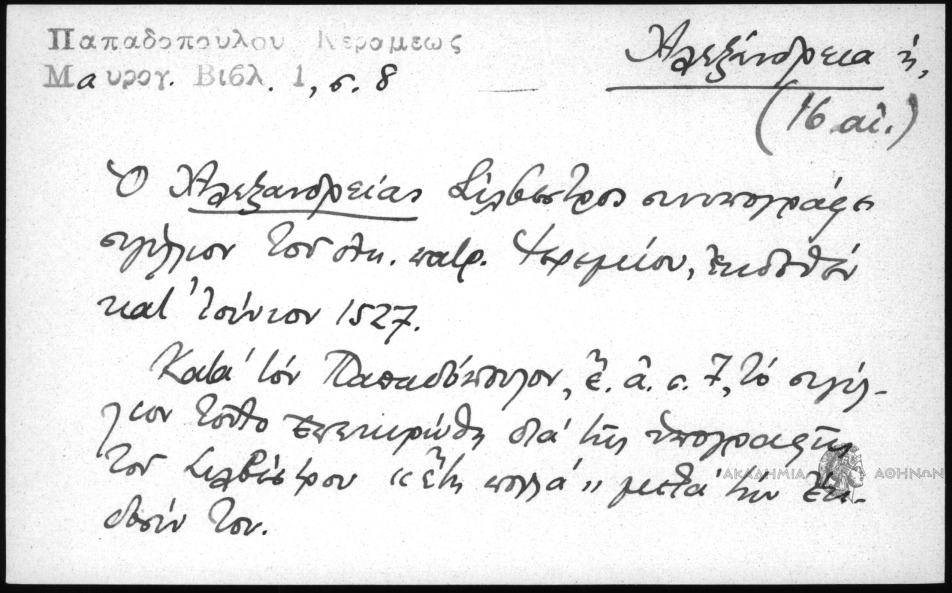 Παπαδοπουλου Κεραμεως
Μαυρογ. Βιβλ. 1, σ. 8
Ἀλεξάνδρεια ἡ,
(16 αἰ.)
Ὁ Ἀλεξανδρείας Σίλβεστρος συνυπογράφει
σιγίλλιον τοῦ οἰκ. πατρ. Ἱερεμίου, ἐκδοθὲν
κατ' Ἰούνιον 1527.
Κατὰ τὸν Παπαδόπουλον, ἔ. ἀ. σ. 7, τὸ σιγίλ-
λιον τοῦτο ἐπεκυρώθη διὰ τῆς ὑπογραφῆς
τοῦ Σιλβέστρου «ἔτη πολλά» μετὰ τὴν ἔκ-
δοσίν του.
ΑΚΑΔΗΜΙΑ ΑΘΗΝΩΝ